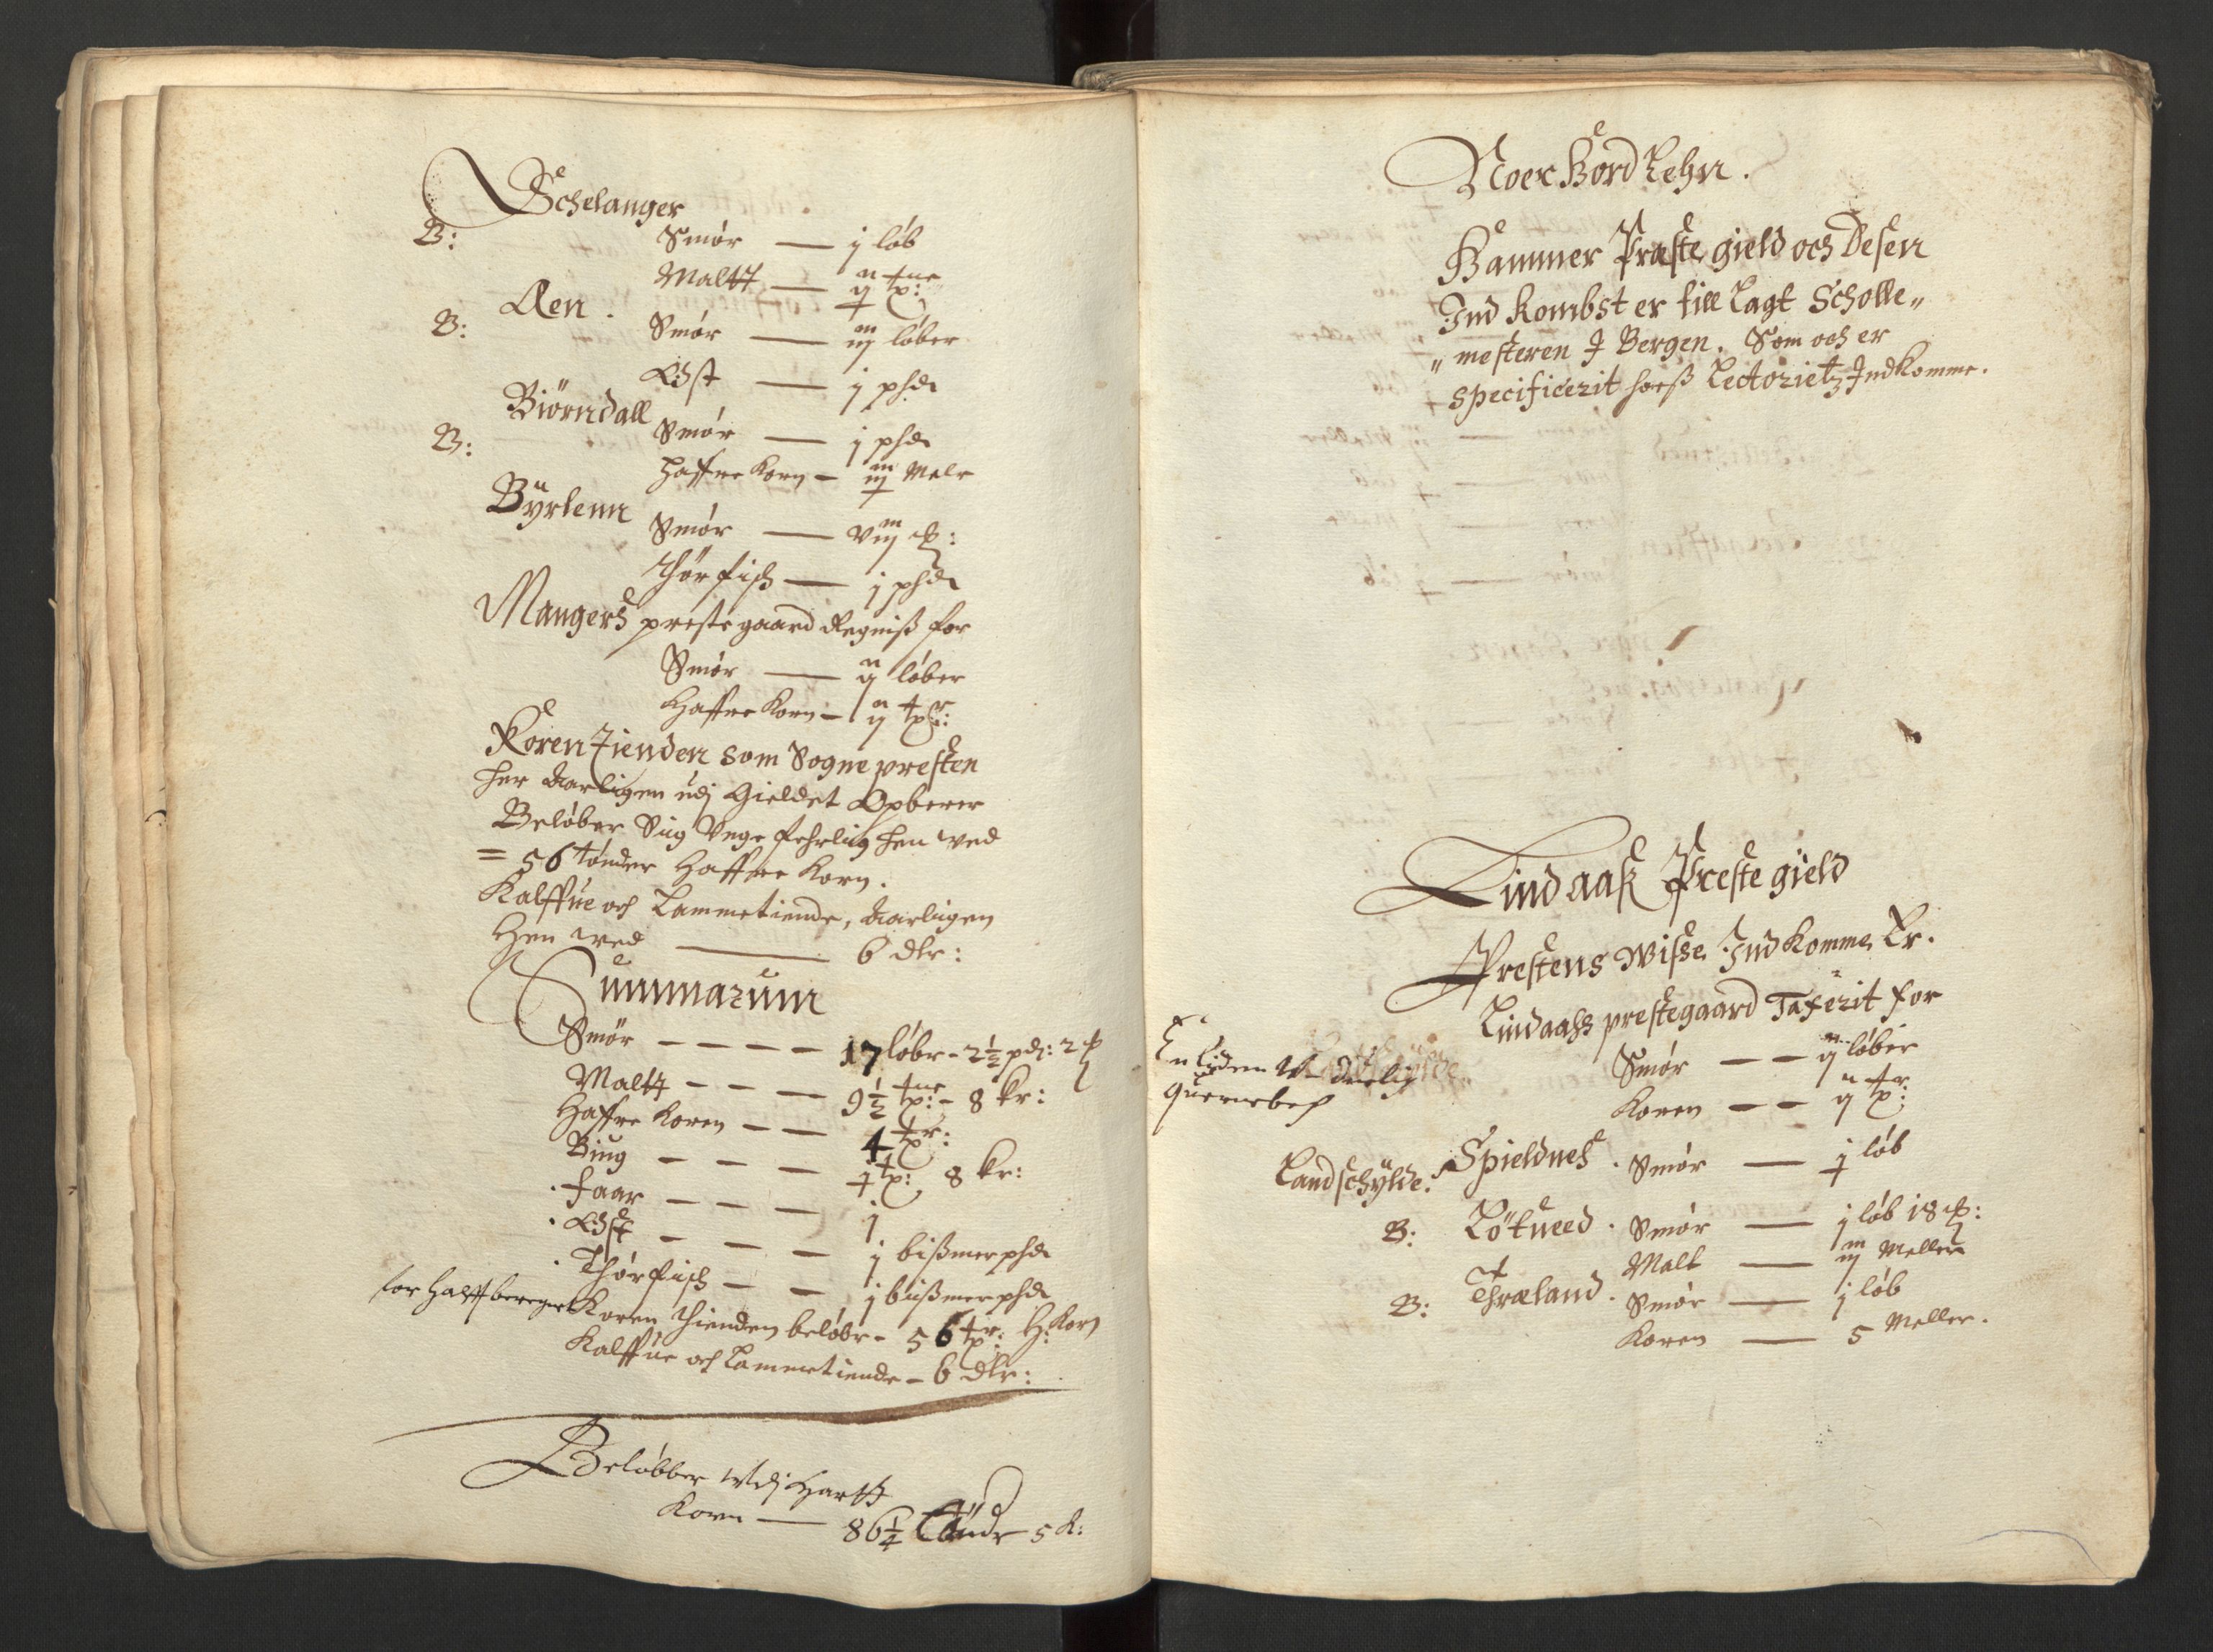 Schelanger
B: Smør — j løb
Maltt — ij tne
Aen.
B: Smør — iij løber
Ost — j phd
Biörndall
B: Smør — j phd
Haffre Korn — iij Mele
Byrlenn
Smør — viij
Thör fisch — j phd
Mangers preste gaard Regniß for
Smør — ij løber
Haffre Korn — ij tpr:
Koren Tienden som Sogne presten
her Aarligen udj Gieldet Opberer
Beløber Sig Unge fehrlig hen wed
= 56 tønder Haffre Korn.
Kalffue och Lammetiende, Aarligen
Hen wed — 6 dlr:
Summarum
Smør — — — — 17 løbr - 2½ pd: 2
Maltt — — — 9½ tne - 8 kr:
Haffre Koren — — 4 tpr:
Biug — — — j tp: 8 kr:
Faar — — — j
Ost — — — j bißmerphd
Thörfisch — — j bißmerphd
for Halff beregnet Koren thienden beløbr - 56 tpr: H: Korn
Kalffue och Lammetiende - 6 dlr:
Beløbber Udj Hartt
Korn — 86¼ Tönde 5 K:
Noer Hord Lehn.
Hammer Præste gield och Desen
Ind kombst er till Lagt Scholle„
„mesteren J Bergen. Som och er
specificerit hoeß Lectorietz IndKomme.
Lindaaß Preste gield
Prestens Wisse Ind Komme Er.
Lindaahs prestegaard Taxerit for
Smør — — ij løber
Koren — — ij tpr:
En liden
Querne
Landschylde. Spieldnes. Smør — j løb
B: Lötueed. Smør — j løb 18
Malt — iij Meller
B: Thræland. Smør — j løb
Koren — 5 Meller.